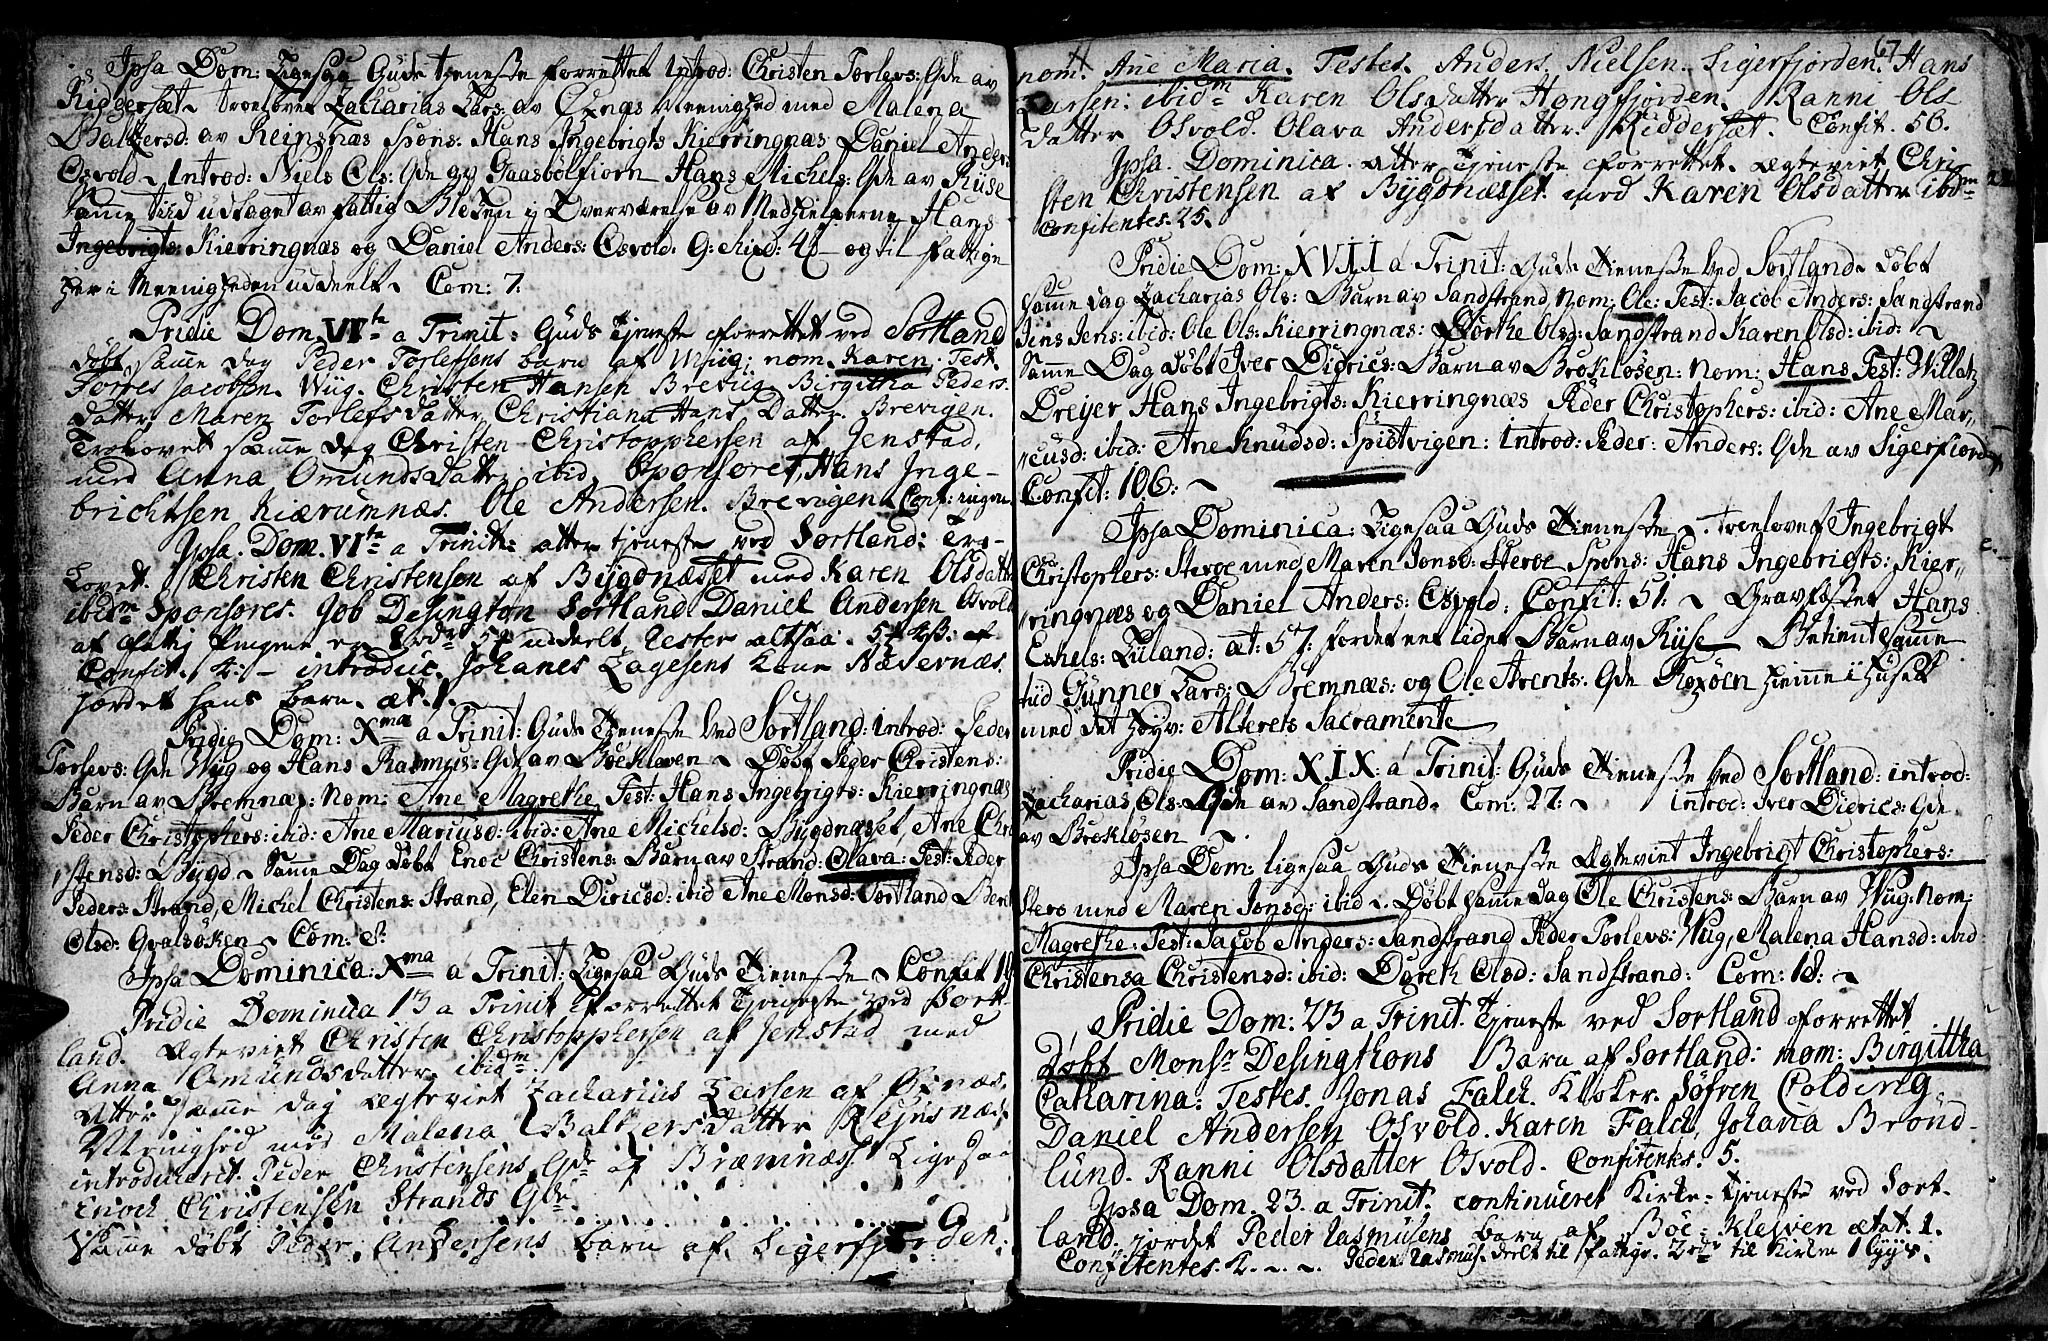 Ipsa Dom: Ligesaa Guds tjeneste forrettet Introd: Christen Torlevs: Qde av
Riddersæt. troelovet Zacharias Lars: av Øxnæs Meenighed med Malena
Baltzersd: av Reinsnæs Spons: Hans Ingebrigts Kierringnæs Daniel Anders
Osvold. Introd: Niels Ols: Qde og Gaasbölfiorn Hans Michels: Qde av Kiise
samme tiid udtaget av fattig Blöken i Overværelse av Medhielperne Hans
Ingebrigts: Kierringnæs og Daniel Anders: Osvold. og til fattige
her i Meenigheden uddeelt. Com: 7.
Pridie Dom VIte a Trinit: Guds tjeneste forrettet ved Sortland
döbt samme dag Peder Torlefsens barn af Wiig: nom. Karen: Test.
Torres Jacobsen. Wiig. Christen Hansen Brevig. Birgitha Peders
datter, Maren Torlefsdatter, Christiana Hans Datter. Brevigen.
Trolovet samme dag Christen Christopphersen af Jenstad,
med Anna Omundsdatter ibid, Sponsores, Hans Inge-
brichtsen Kiærumnæs. Ole Andersen. Brevigen. Conf: ingen.
Ipsa. Dom. VIte a Trinit: atter tjeneste ved Sortland: Tro-
lovet. Christen Christensen af Bygdnæsset med Karen Olsdatter
ibidm Sponsores. Job Desington Sortland Daniel Andersen Osvold
af fattig Pengene er uddeelt rester altsaa
Confit. 4: – introduc. Johanes Lagesens kone Nævernæs.
jordet hans barn. æt. 1.
Pridie Dom: Xma a Trinit: Guds Tieneste Ved Sortland: introd: Peder
Torlevs: Qde Wiig og Hans Rasmus: Qde av Böekleven. Döbt Peder Christens:
Barn av Bremnæs: Nom: Ane Magrethe Test: Hans Ingebrigts: Kierringnæs
Peder Christophers: ibid: Ane Mariusd: ibid: Ane Michelsd: Bygdnæsset, Ane Chri
stensd: Bygd. Samme Dag döbt Enoc Christens: Barn av Strand: Olava: Test: Peder
Peders: Strand, Michel Christens: Strand, Elen Diricsd: ibid Ane Monsd: Sortland Beret
Olsd: Qvalsöken. Com: 8:
Ipsa Dominica: Xma a Trinit: Ligesaa Guds Tieneste. Confit 19
Pridie Dominica 13 a Trinit forrettet Tjeneste ved Sort-
land. Ægteviet Christen Christopphersen af Jenstad med
Anna Omundsdatter. ibidm.
Atter samme dag Ægteviet Zacharius Larsen af Öxnæs
Menighed med Malena Baltzersdatter Rejnsnæs
introduceret. Peder Christensens Qde af Bræmnæs. Ligesaa
Enoch Christensen Strands Qde.
Samme döbt Peder Andersens barn af Sigerfjorden:
67
nom. Ane Maria. Testes. Anders Nielsen. Sigerfjorden. Hans
Larsen: ibidm Karen Olsdatter Hongfjorden. Ranni Ols
datter Osvold. Olava Andersdatter. Riddersæt. Confit. 56.
Ipsa. Dominica. atter Tjeneste forrettet. Ægteviet Chri-
sten Christensen af Bygdnæsset med Karen Olsdatter ibidm
Confitentes. 25.
Pridie Dom: XVII a Trinit: Guds Tieneste Ved Sortland. döbt
samme dag Zacharias Ols: Barn av Sandstrand. Nom: Ole: Test: Jacob Anders: Sandstrand
Jens Jens: ibid: Ole Ols: Kierringnæs: Dorthe Olsd: Sandstrand Karen Olsd: ibid:
Samme Dag döbt Iver Dirics: Barn av Brokløsen: Nom: Hans Test: Willatz
Dreyer Hans Ingebrigts: Kierringnæs Peder Christophers: ibid: Ane Mar-
cusd: ibid: Ane Knudsd: Spistvigen: Introd: Peder: Anders: Qde av Sigerfiord
Confit: 106:
Ipsa Dominica: Ligesaa Guds Tieneste. Troelovet Ingebrigt
Christophers: Steroe med Maren Jonsd: Steroe Spons: Hans Ingebrigts: Kier-
ringnæs og Daniel Anders: Osvold: Confit: 51: Gravfæstet Hans
Eshels: Zuland: æt: 57: fordet eet lidet Barn av Kiise. Betient samme
tiid Gunner Lars: Bremnæs: og Ole Arents: Qde Roxöen hiemme i Huset
med det høyv: Alterets Sacramente
Pridie Dom: XIX: a Trinit: Guds Tieneste Ved Sortland: introd:
Zacharias Ols: Qde av Sandstrand. Com: 27: introd: Iver Dierics: Qde
av Brokløsen
Ipsa Dom: ligesaa Guds Tieneste Ægteviet Ingebrigt Christophers:
Stero med Maren Jonsd: ibid. Döbt samme dag Ole Christens: Barn av Wiig: Nom:
Magrethe: Test: Jacob Anders: Sandstrand Peder Torlevs: Wiig, Malena Hansd: ibid:
Christensa Christensd: ibid: Doreth Olsd: Sandstrand: Com: 18:
Pridie Dom: 23 a Trinit. Tjeneste ved Sortland forrettet
Döbt Monsr Desingthons Barn af Sortland: nom: Birgittha
Catharina: Testes. Jonas Falch. Kloker. Söfren Colding
Daniel Andersen Osvold. Karen Falch, Johana Brönd-
lund. Ranni Olsdatter Osvold. Confitentes. 5.
Ipsa Dom. 23. a Trinit. continueret Kirke-Tjeneste ved Sort-
land. jordet Peder Rasmusens barn af Böe-Klejven ætat. 1.
Confitentes. 2. Peder Rasmus. deelt til fattige. til Kirken